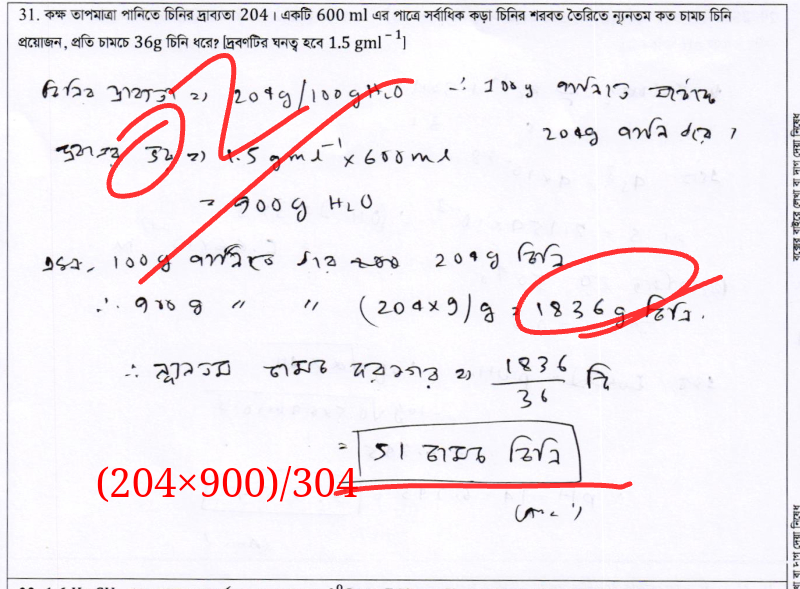 31. কক্ষ তাপমাত্রা পানিতে চিনির দ্রাব্যতা 204। একটি 600 ml এর পাত্রে সর্বাধিক কড়া চিনির শরবত তৈরিতে ন্যূনতম কত চামচ চিনি
প্রয়োজন, প্রতি চামচে 36g চিনি ধরে? [দ্রবণটির ঘনত্ব হবে 1.5 gml⁻¹]
চিনির দ্রাব্যতা ⇒ 204g/100g H₂O ∴ 100g পানিতে
204g
ভর ⇒ 1.5 gml⁻¹ × 600ml
= 900g H₂O
100g পানিতে 204g চিনি
∴ 900g " " (204×9)g = 1836g চিনি.
∴ ন্যূনতম চামচ দরকার ⇒ 1836/36 টি
= 51 চামচ চিনি
(204×900)/304
(Ans:)